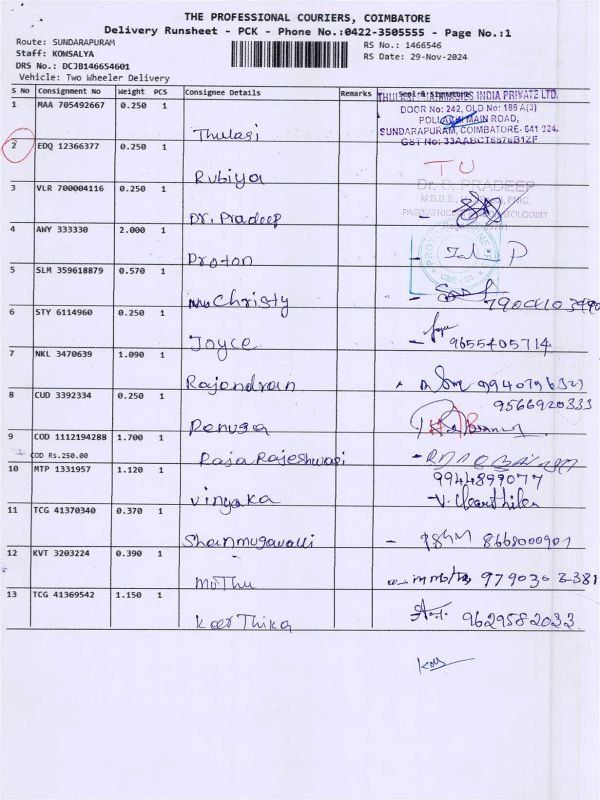 THE PROFESSIONAL COURIERS, COIMBATORE
Delivery Runsheet - PCK - Phone No.:0422-3505555 - Page No.:1
Route: SUNDARAPURAM
Staff: KOWSALYA
DRS No.: DCJB146654601
Vehicle: Two Wheeler Delivery
RS No.: 1466546
RS Date: 29-Nov-2024
S No Consignment No Weight PCS Consignee Details Remarks Seal & Signature
1 MAA 705492667 0.250 1 Thulasi
INDIA PRIVATE LTD.
DOOR No: 242, OLD No: 189 A(3)
POLLACHI MAIN ROAD,
SUNDARAPURAM, COIMBATORE- 641 024.
2 EDQ 12366377 0.250 1 Rubiya
TU
3 VLR 700004116 0.250 1 Dr. Pradeep
Dr. G. PRADEEP
4 AWY 333330 2.000 1 Proton
5 SLM 359618879 0.570 1 Christy
6 STY 6114960 0.250 1 Joyce 9655405714
7 NKL 3470639 1.090 1 Rajendran
8 CUD 3392334 0.250 1 Renuga 9566920333
9 COD 1112194288 1.700 1 Raja Rajeshwari
COD Rs.250.00
10 MTP 1331957 1.120 1 Vinyaka 9944899077
11 TCG 41370340 0.370 1 Shanmugavalli
12 KVT 3203224 0.390 1 MuThu
13 TCG 41369542 1.150 1 KeerThika 9629582033